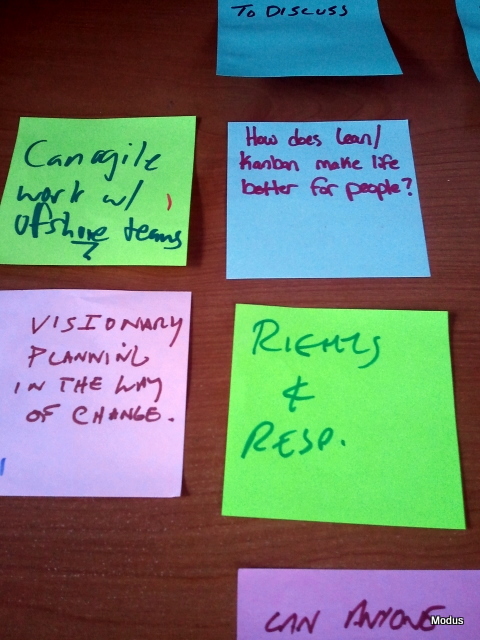 TO DISCUSS
Can agile
work w/
offshore teams
?
How does Lean/
Kanban make life
better for people?
VISIONARY
PLANNING
IN THE WAY
OF CHANGE.
RIGHTS
&
RESP.
CAN ANYONE
Modus